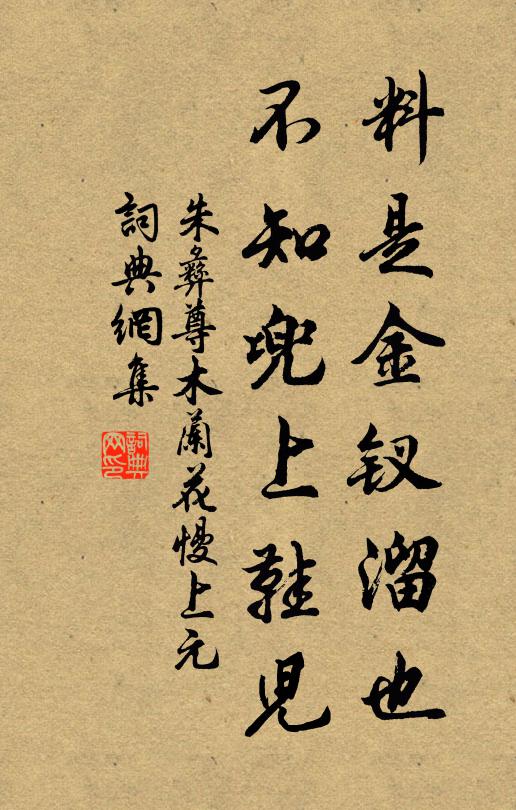 料是金釵溜也
不知兜上鞋兒
朱彝尊木蘭花慢上元
詞典網集
詞典網印